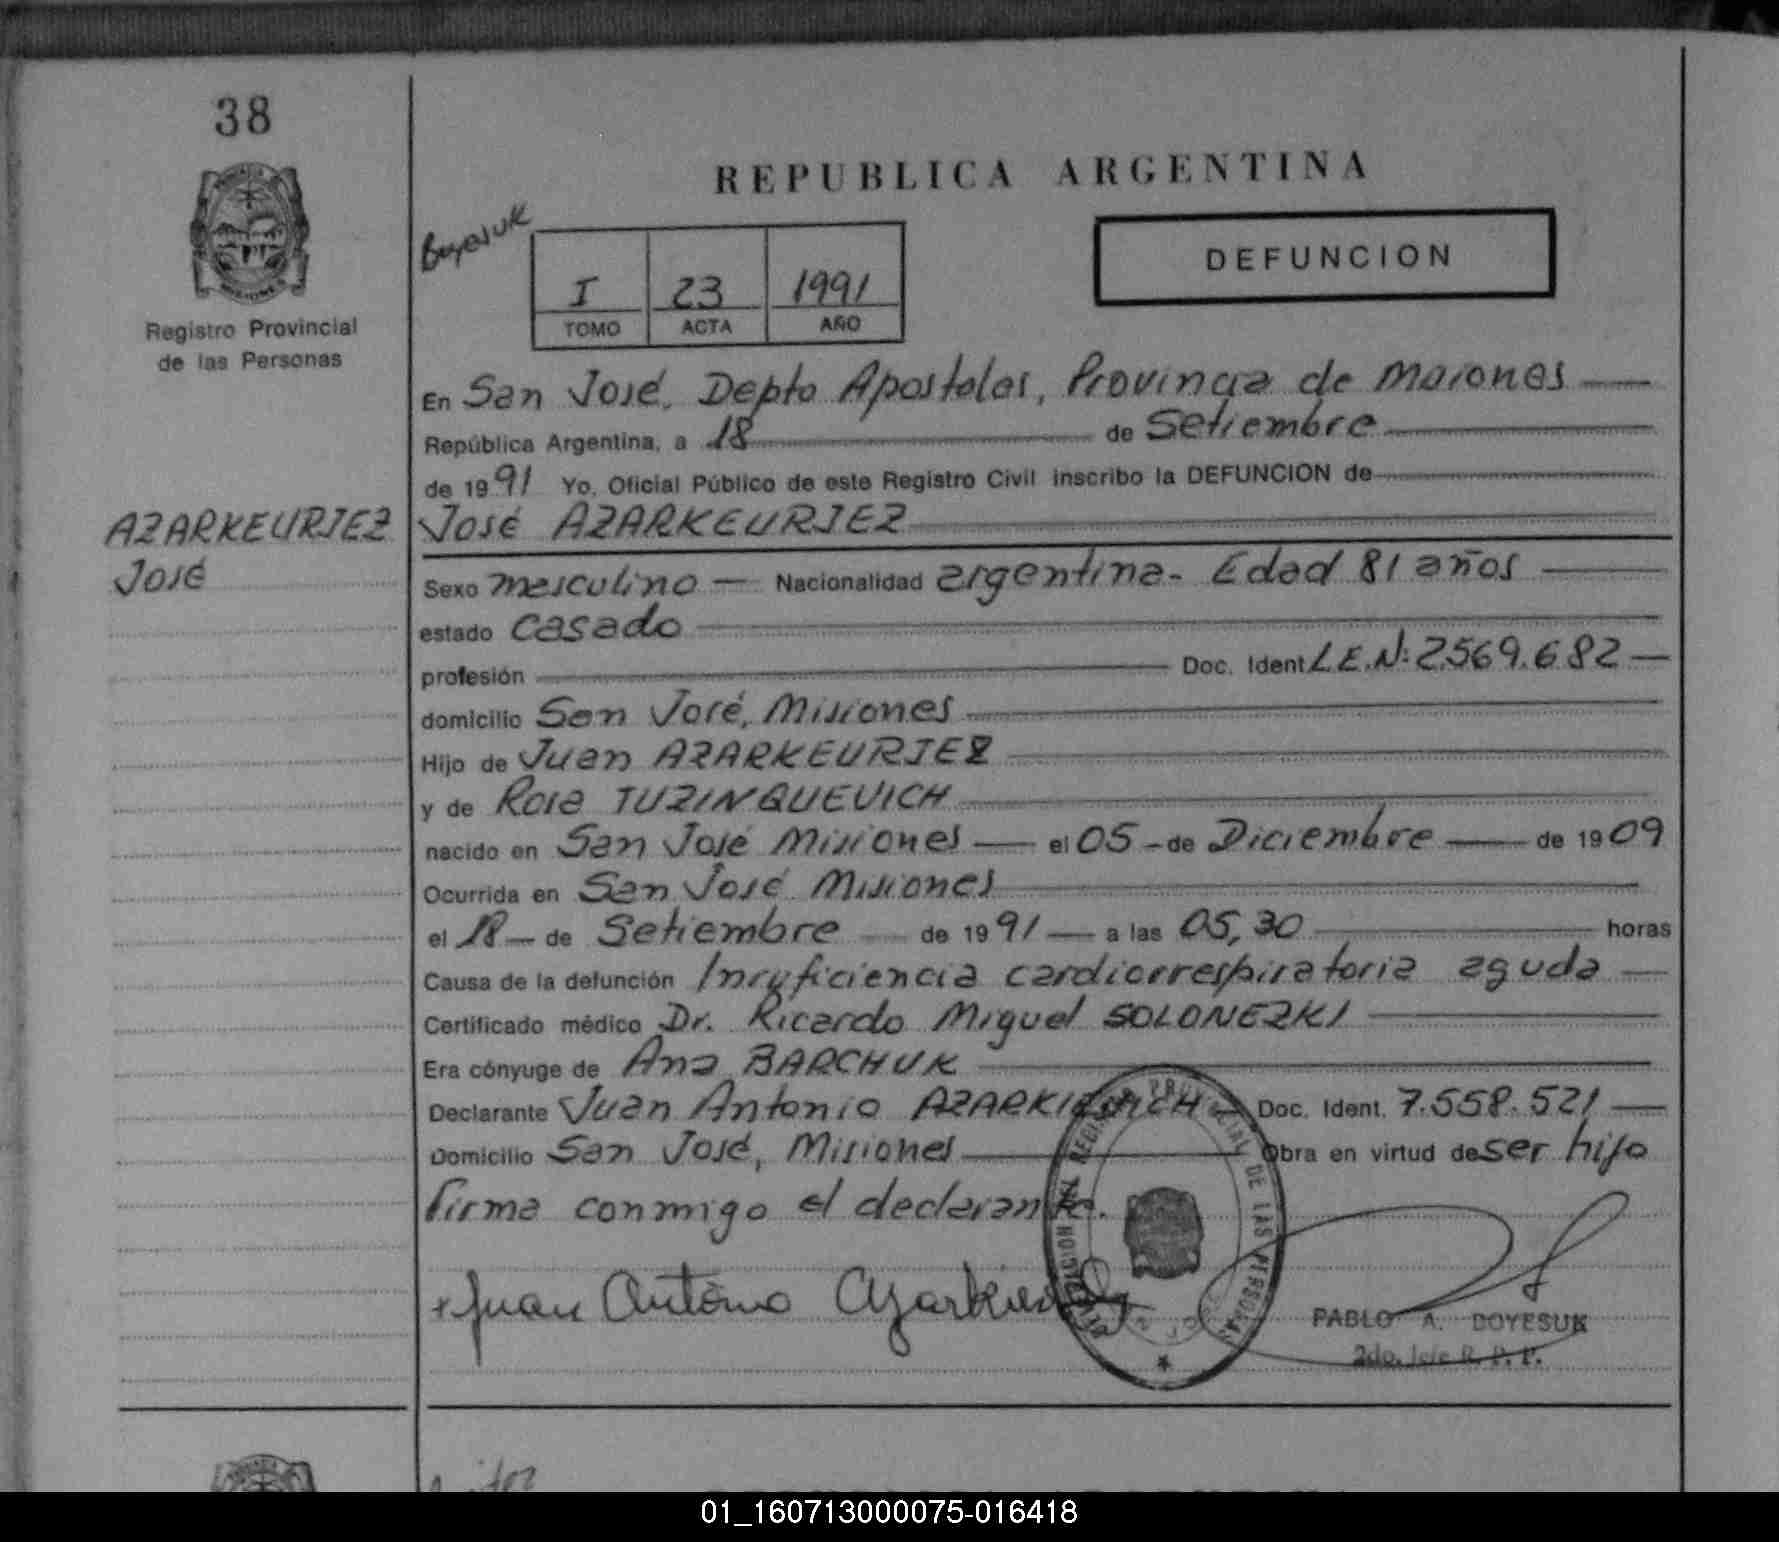 38
MISIONES
Registro Provincial
de las Personas
AZARKEURJEZ
José
REPUBLICA ARGENTINA
Boyesuk
I 23 1991
TOMO ACTA AÑO
DEFUNCION
En San José, Depto Apostoles, Provincia de Misiones
República Argentina, a 18 de Setiembre
de 1991 Yo, Oficial Público de este Registro Civil inscribo la DEFUNCION de
José AZARKEURJEZ
Sexo masculino — Nacionalidad argentina - Edad 81 años
estado casado
profesión Doc. Ident L.E.N: 2.569.682
domicilio San José, Misiones
Hijo de Juan AZARKEURJEZ
y de Rosa TUZINQUEVICH
nacido en San José Misiones — el 05 - de Diciembre — de 1909
Ocurrida en San José Misiones
el 18 — de Setiembre — de 1991 — a las 05,30 horas
Causa de la defunción Insuficiencia cardiorrespiratoria aguda
Certificado médico Dr. Ricardo Miguel SOLONEZKI
Era cónyuge de Ana BARCHUK
Declarante Juan Antonio Doc. Ident. 7.558.521
Domicilio San José, Misiones Obra en virtud de ser hijo
firma conmigo el declarante.
Juan Antonio
REGISTRO PROVINCIAL DE LAS PERSONAS
PABLO A. BOYESUK
2do. Jefe R. P. P.
01_160713000075-016418